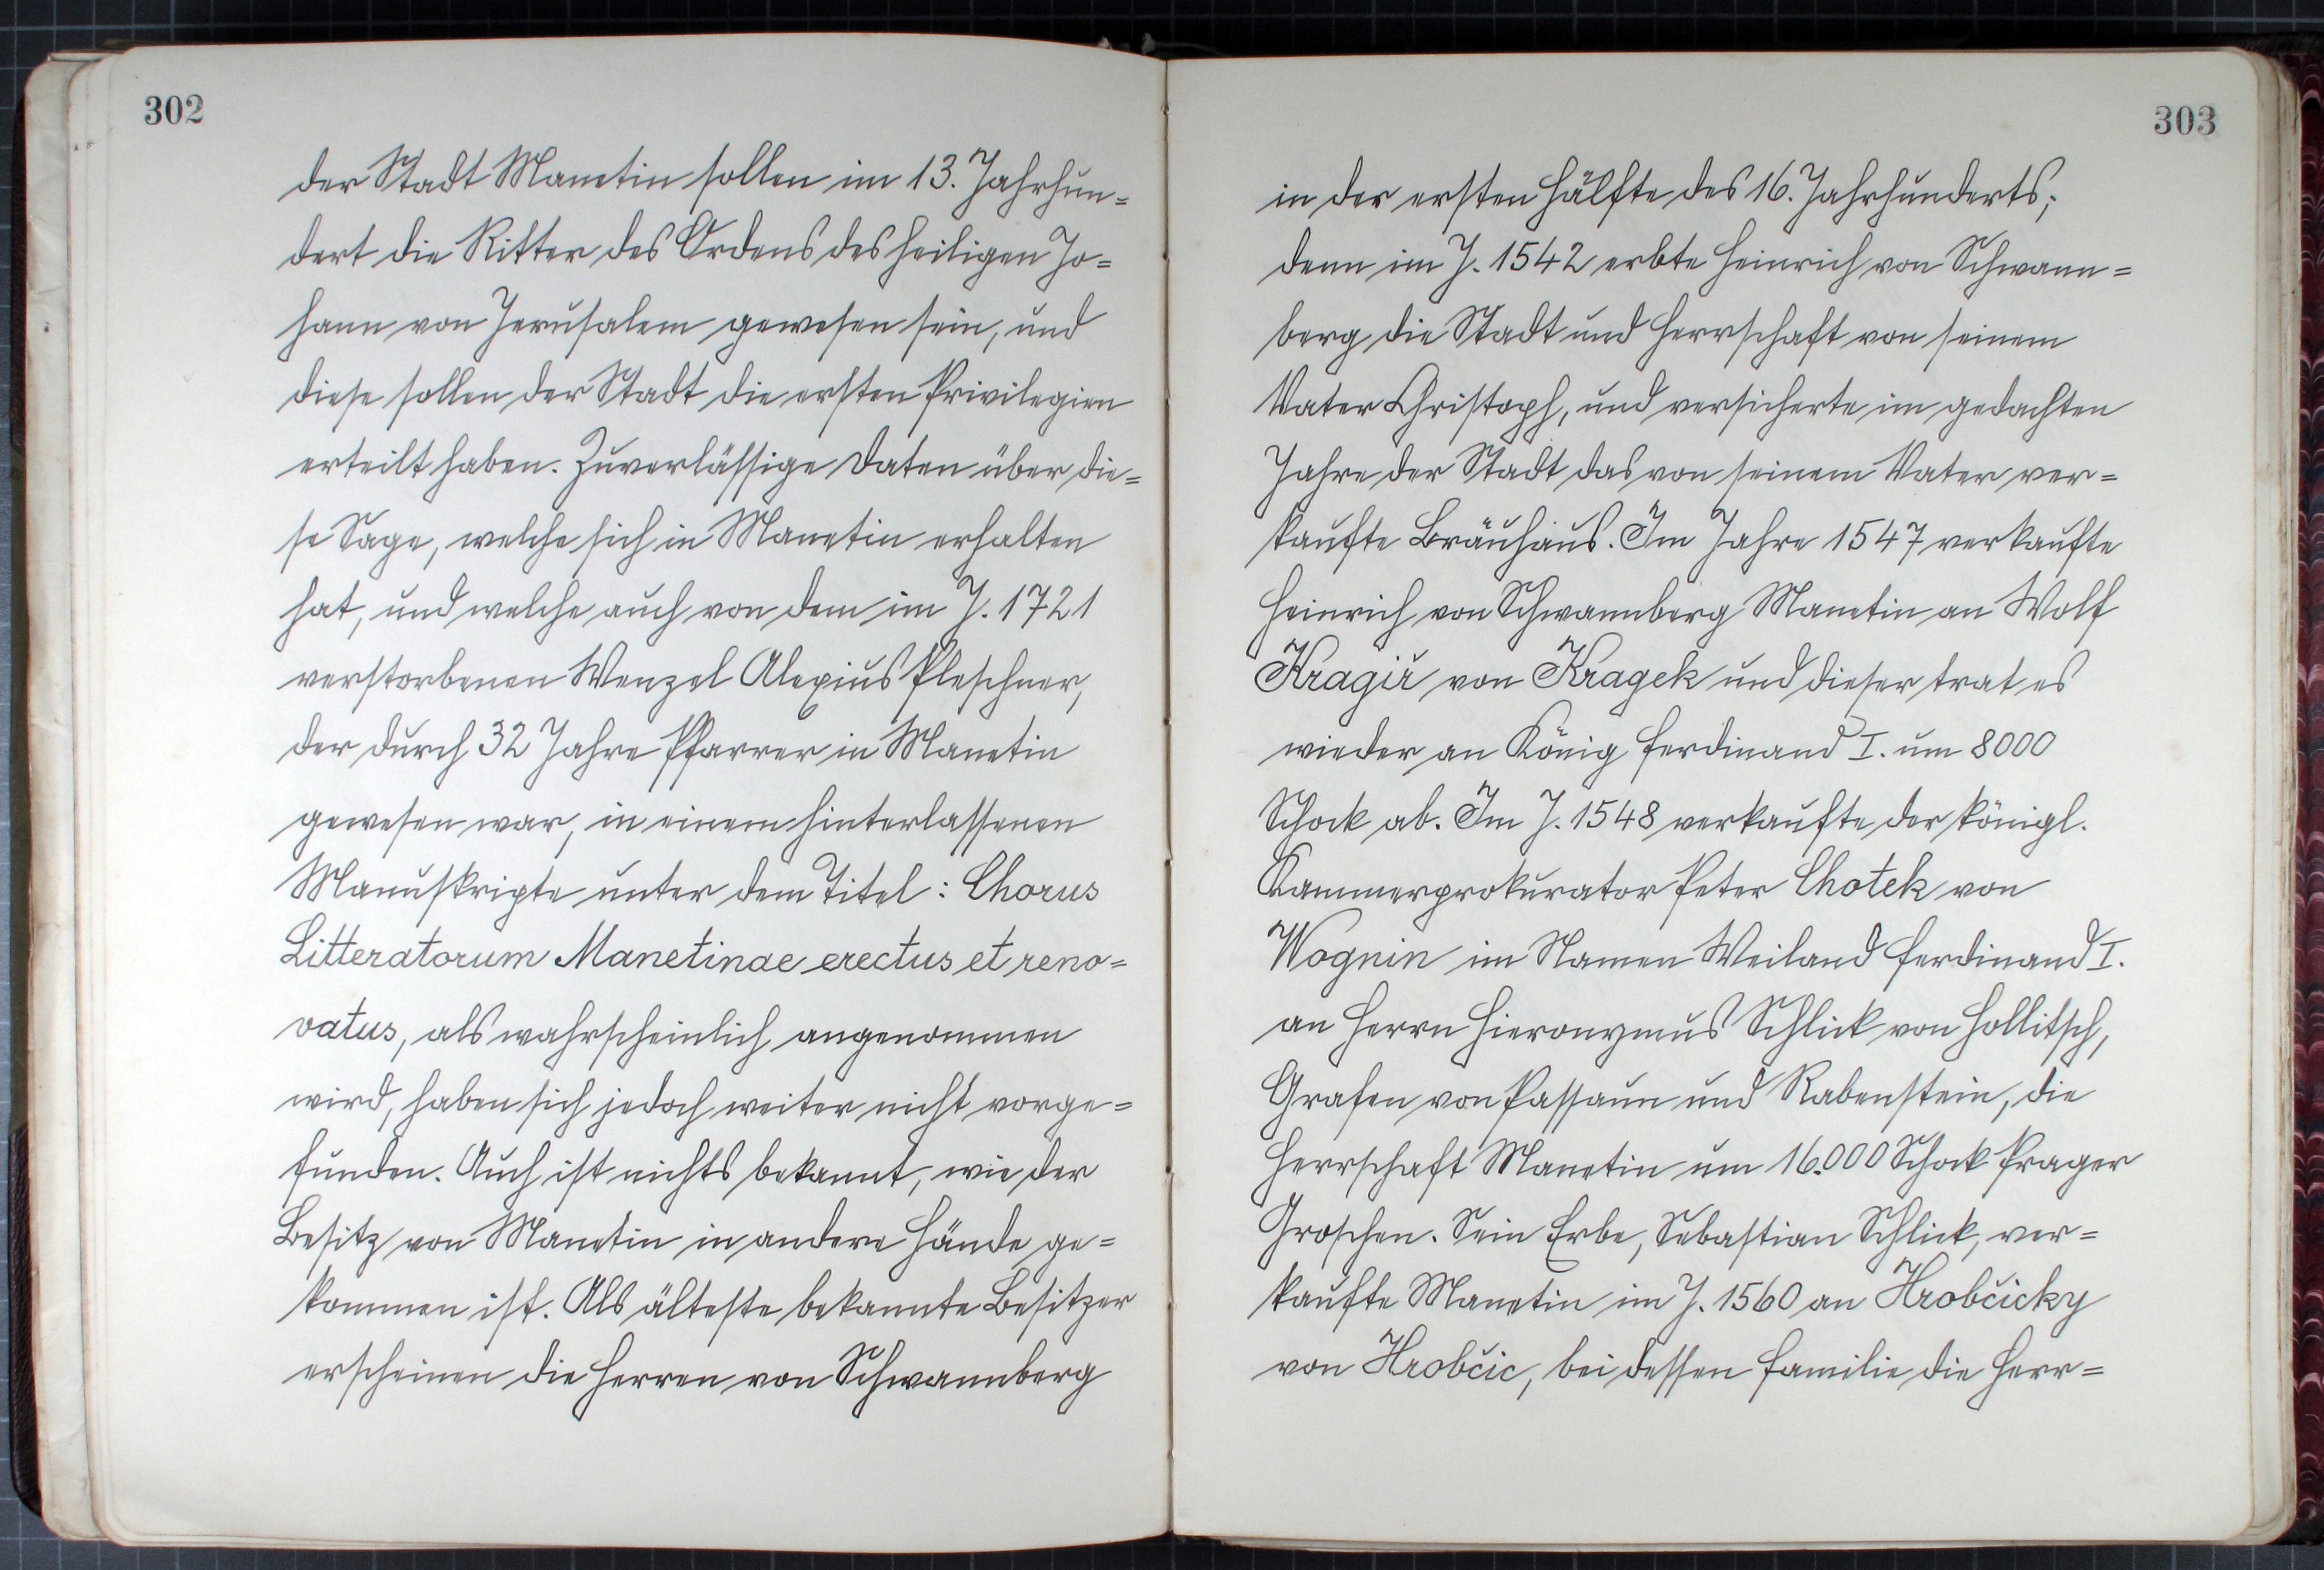 302
der Stadt Manetin sollen im 13. Jahrhun=
dert die Ritter des Ordens des heiligen Jo=
hann von Jerusalem gewesen sein, und
diese sollen der Stadt die ersten Privilegien
erteilt haben. Zuverlässige Daten über die=
se Sage, welche sich in Manetin erhalten
hat, und welche auch von dem im J. 1721
verstorbenen Wenzel Alexius Pleschner,
der durch 32 Jahre Pfarrer in Manetin
gewesen war, in einem hinterlassenen
Manuskripte unter dem Titel: Chorus
Litteratorum Manetinae erectus et reno=
vatus, als wahrscheinlich angenommen
wird, haben sich jedoch weiter nicht vorge=
funden. Auch ist nichts bekannt, wie der
Besitz von Manetin in andere Hände ge=
kommen ist. Als älteste bekannte Besitzer
erscheinen die Herren von Schwannberg
303
in der ersten Hälfte des 16. Jahrhunderts;
denn im J. 1542 erbte Heinrich von Schwann=
berg die Stadt und Herrschaft von seinem
Vater Christoph, und versicherte im gedachten
Jahre der Stadt das von seinem Vater ver=
kaufte Bräuhaus. Im Jahre 1547 verkaufte
Heinrich von Schwannberg Manetin an Wolf
Kragiř von Kragek und dieser trat es
wieder an König Ferdinand I. um 8000
Schock ab. Im J. 1548 verkaufte der königl.
Kammerprokurator Peter Chotek von
Wognin im Namen Weiland Ferdinand I.
an Herrn Hieronymus Schlick von Hollitsch,
Grafen von Passaun und Rabenstein, die
Herrschaft Manetin um 16.000 Schock Prager
Groschen. Sein Erbe, Sebastian Schlick, ver=
kaufte Manetin im J. 1560 an Hrobčicky
von Hrobčic, bei dessen Familie die Herr=